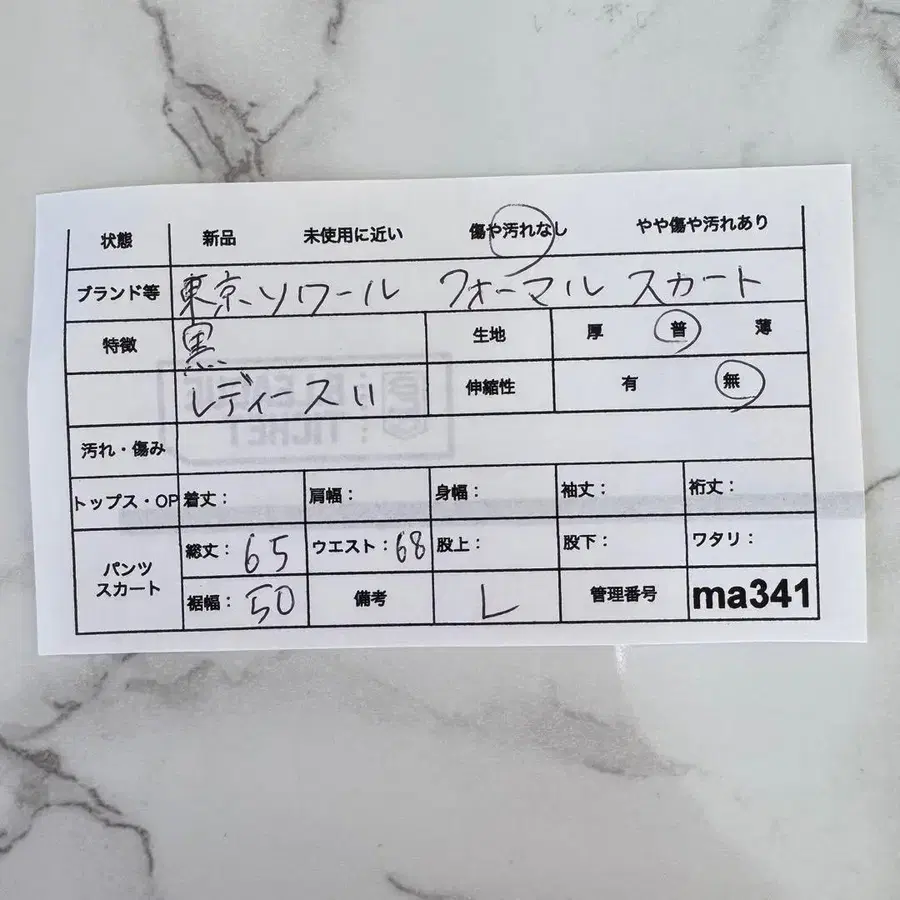 状態 新品 未使用に近い 傷や汚れなし やや傷や汚れあり
ブランド等 東京ソワール フォーマル スカート
特徴 黒 生地 厚 普 薄
レディース11 伸縮性 有 無
汚れ・傷み
トップス・OP 着丈： 肩幅： 身幅： 袖丈： 裄丈：
パンツ スカート 総丈：65 ウエスト：68 股上： 股下： ワタリ：
裾幅：50 備考 L 管理番号 ma341